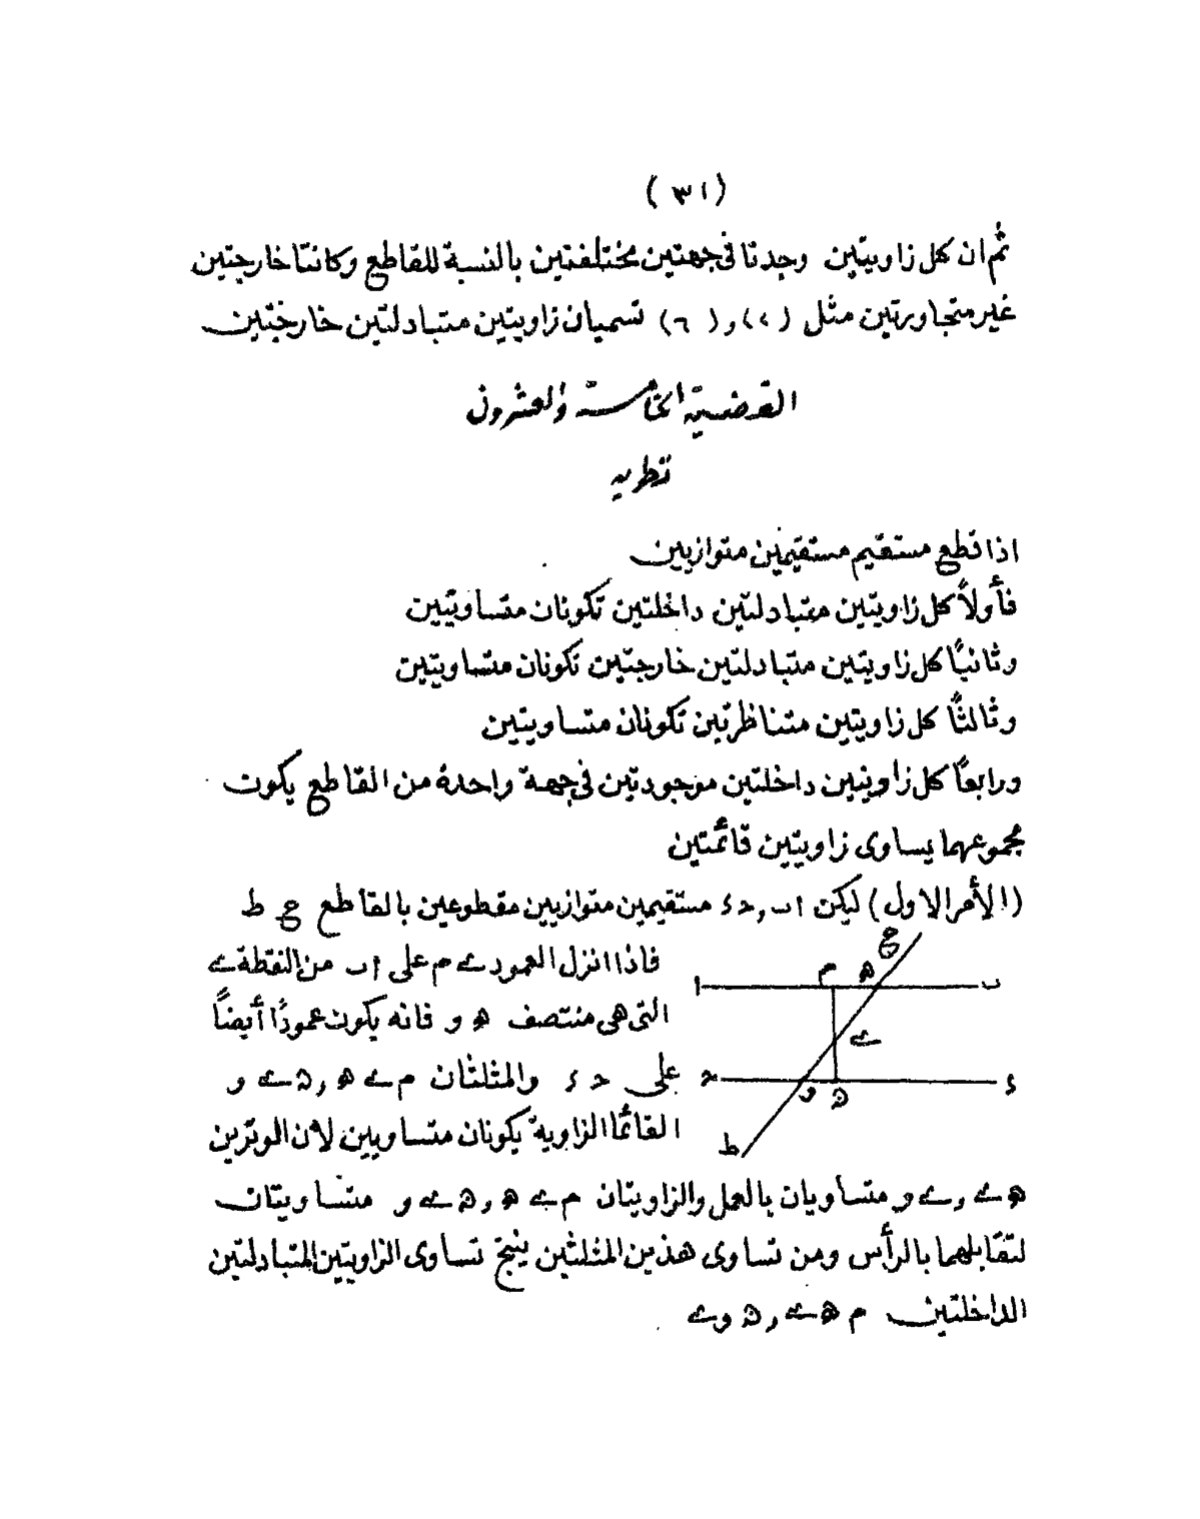 (٣١)
ثم ان كل زاويتين وجدتا فى جهتين مختلفتين بالنسبة للقاطع وكانتا خارجتين
غير متجاورتين مثل (٢) و (٦) تسميان زاويتين متبادلتين خارجتين
القضية الخامسة والعشرون
نظرية
اذا قطع مستقيم مستقيمين متوازيين
فأولاً كل زاويتين متبادلتين داخلتين تكونان متساويتين
وثانياً كل زاويتين متبادلتين خارجتين تكونان متساويتين
وثالثاً كل زاويتين متناظرتين تكونان متساويتين
ورابعاً كل زاويتين داخلتين موجودتين فى جهة واحدة من القاطع يكون
مجموعهما يساوى زاويتين قائمتين
(الأمر الاول) ليكن ا ب , ح د مستقيمين متوازيين مقطوعين بالقاطع ع ط
فاذا انزل العمود ى م على ا ب من النقطة ى
التى هى منتصف ه و فانه يكون عموداً أيضاً
على ح د والمثلثان م ى ه , ن ى و
القائما الزاوية يكونان متساويين لان الوترين
ه ى , ى و متساويان بالعمل والزاويتان م ى ه , ن ى و متساويتان
لتقابلهما بالرأس ومن تساوى هذين المثلثين ينتج تساوى الزاويتين المتبادلتين
الداخلتين م ه ى , ن و ى
ع
ا م ه ب
ى
ح و ن د
ط